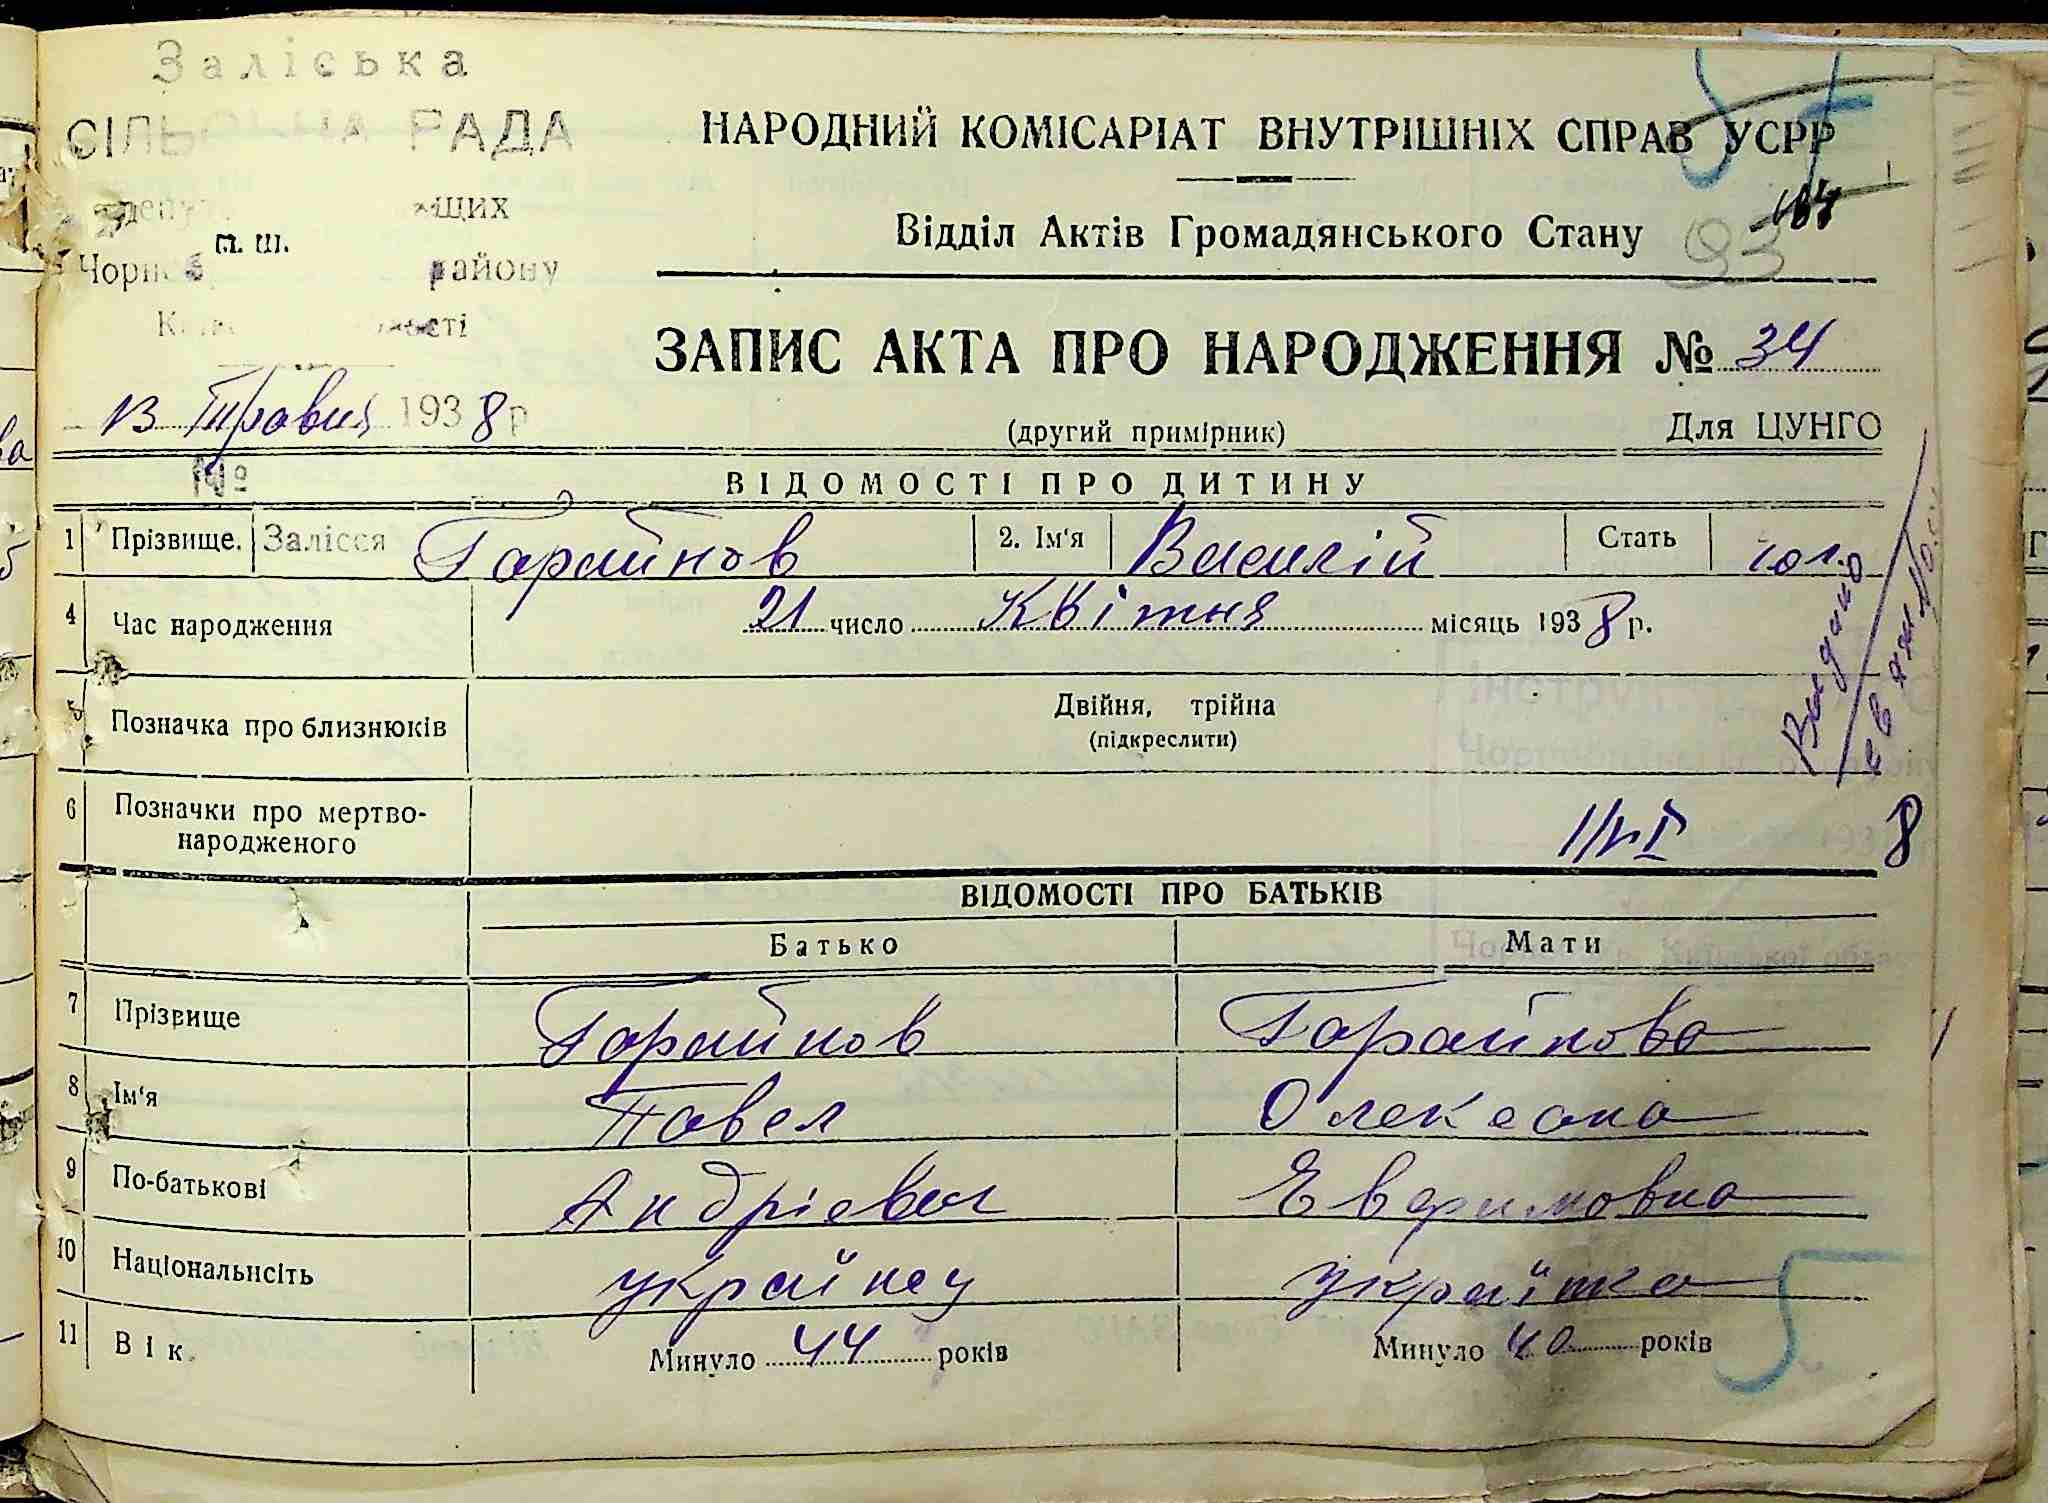 Заліська
СІЛЬ НА РАДА
п. ш.
району
НАРОДНИЙ КОМІСАРІАТ ВНУТРІШНІХ СПРАВ УСРР
Відділ Актів Громадянського Стану
93
ЗАПИС АКТА ПРО НАРОДЖЕННЯ № 34
13 Травня 1938 р
(другий примірник) Для ЦУНГО
№
ВІДОМОСТІ ПРО ДИТИНУ
1 Прізвище. Залісся Гарайнов 2. Ім'я Василій Стать чол.
4 Час народження 21 число Квітня місяць 1938 р.
5 Позначка про близнюків Двійня, трійна
(підкреслити)
6 Позначки про мертво-
народженого
Видано
8
ВІДОМОСТІ ПРО БАТЬКІВ
Батько Мати
7 Прізвище Гарайнов Гарайнова
8 Ім'я Павел Олексана
9 По-батькові Андрієвич Евфимовна
10 Національнсіть українец українка
11 Вік. Минуло 44 років Минуло 40 років
5